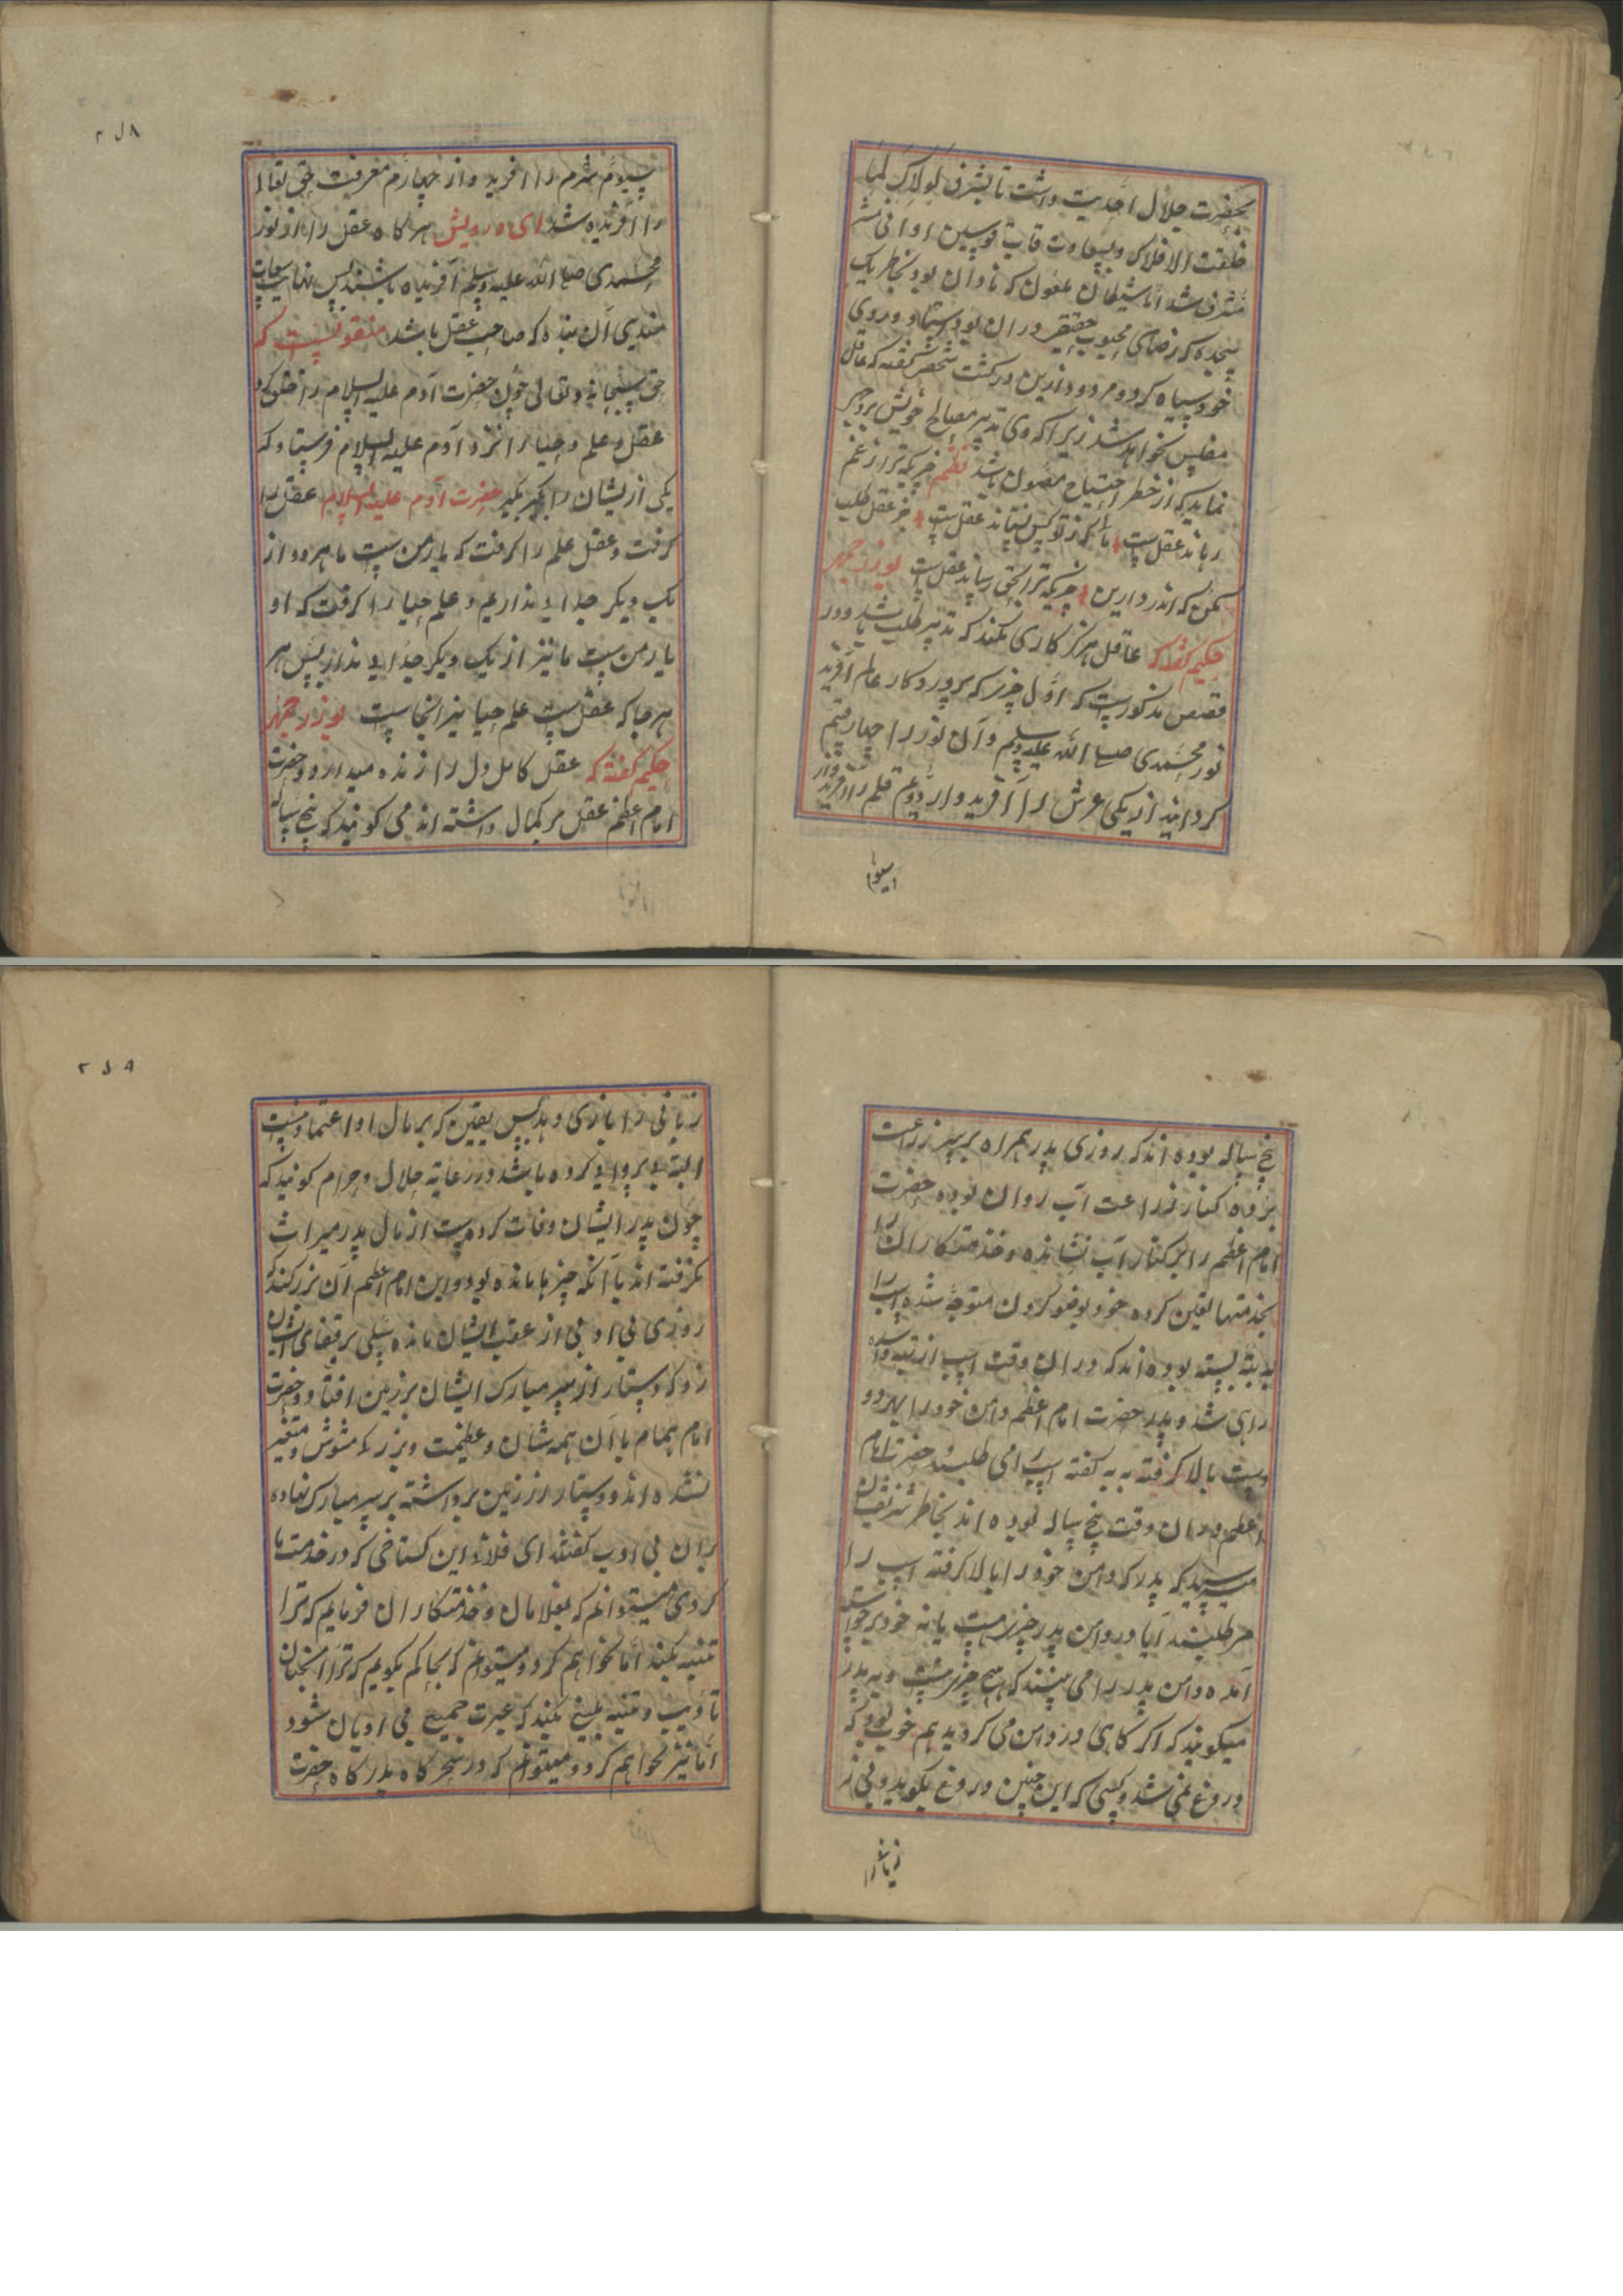 بحضرت جلال احدیت داشت تا بشرف لولاک لما
خلقت الافلاک و بسعادت قاب قوسین او ادنی
مشرف شد اما شیطان ملعون که نادان بود بخاطر یک
سجده که رضای محبوب حقیقی در ان بود استاد و روی
خود سیاه کرد و مردود دارین درکشت شخصی کفته که عاقل
مفلس نخواهد شد زیرا که وی تدبیر مصالح خویش بر وجهی
نماید که از خطر احتیاج مصون باشد نظم چیزیکه ترا ز غم
رهاند عقل است یا کز تو کس نستاند عقل است جز عقل طلب
مکن که اندر دارین چیزیکه ترا بحق رساند عقل است بوذرجمهر
حکیم گفته که عاقل هرکز کاری نکند که تدبیر طلب باشد و در
قصص مذکور است که اول چیزی که پروردکار عالم آفرید
نور محمدی صلی الله علیه وسلم و آن نور را چهار قسم
کردانید از یکی عرش را آفرید و از دوم قلم را آفرید و از
اسیوم
۲۱۸
سیوم شرم را آفرید و از چهارم معرفت حق تعالی
را آفریده شد ای درویش هر کاه عقل را از نور
محمدی صلی الله علیه وسلم آفریده باشند پس نهایت سعادت
مندی آن بنده که صاحب عقل باشد منقولست که
حق سبحانه وتعالی چون حضرت آدم علیه السلام را خلق کرد
عقل و علم و حیا را نزد آدم علیه السلام فرستاد که
یکی از یشان را بگیر حضرت آدم علیه السلام عقل را
کرفت و عقل علم را کرفت که یار من ست ما هر دو از
یک دیکر جدایی نداریم و علم حیا را کرفت که او
یار من ست ما نیز از یک دیکر جدایی نداریم پس هر
هر جا که عقل ست علم حیا نیز انجاست بوذرجمهر
حکیم کفته که عقل کامل دل را زنده میدارد و حضرت
امام اعظم عقل بر کمال داشته اند می کویند که پنج ساله
پنج ساله بوده اند که روزی پدر همراه بر سر زراعت
برده کنار زراعت آب روان بوده حضرت
امام اعظم را بر کنار آب نشانده و خدمتکاران را
بخدمتها تعین کرده خود بوضو کردن متوجه شده اسب را
به بته بسته بوده اند که در ان وقت اسپ از بته وا شده
راهی شد و پدر حضرت امام اعظم دامن خود را بهر دو
دست بالا کرفته به به کفته اسپ را می طلبند حضرت امام
اعظم در ان وقت پنج ساله بوده اند بخاطر شریف ایشان
میرسد که پدر که دامن خود را بالا کرفته اسپ را
می طلبند آیا در دامن پدر چیزی هست یا نه خود برخواسته
آمده دامن پدر را می بینند که هیچ چیز نیست و به پدر
میکویند که اکر کاهی در دامن می کردید هم خوب بود که
دروغ نمی شد و کسی که این چنین دروغ بکوید و بی ز
زبانی را
۲۱۹
زبانی را بازی دهد پس یقین که بر مال او اعتماد نیست
البته بی پروایی کرده باشد در رعایه حلال و حرام کویند که
چون پدر ایشان وفات کرده ست از مال پدر میراث
نکرفته اند با آنکه چیزها مانده بود و این امام اعظم آن بزرکند که
روزی بی ادبی از عقب ایشان مانده سیلی بر قفای ایشان
زد که دستار از سر مبارک ایشان بر زمین افتاد و حضرت
امام همام با آن همه شان و عظمت و بزرکی مشوش و متغیر
نشده اند و دستار از زمین برداشته بر سر مبارک نهاده
بران بی ادب کفتند ای فلانی این کستاخی که در خدمت ما
کردی میتوانم که بغلامان و خدمتکاران فرمایم که ترا
تنبیه بکنند اما نخواهم کرد و میتوانم که بحاکم بکویم که ترا آنچنان
تادیب و تنبیه بلیغ بکند که عبرت جمیع بی ادبان شود
اما نیز نخواهم کرد و میتوانم که در سحر کاه بدرکاه حضرت